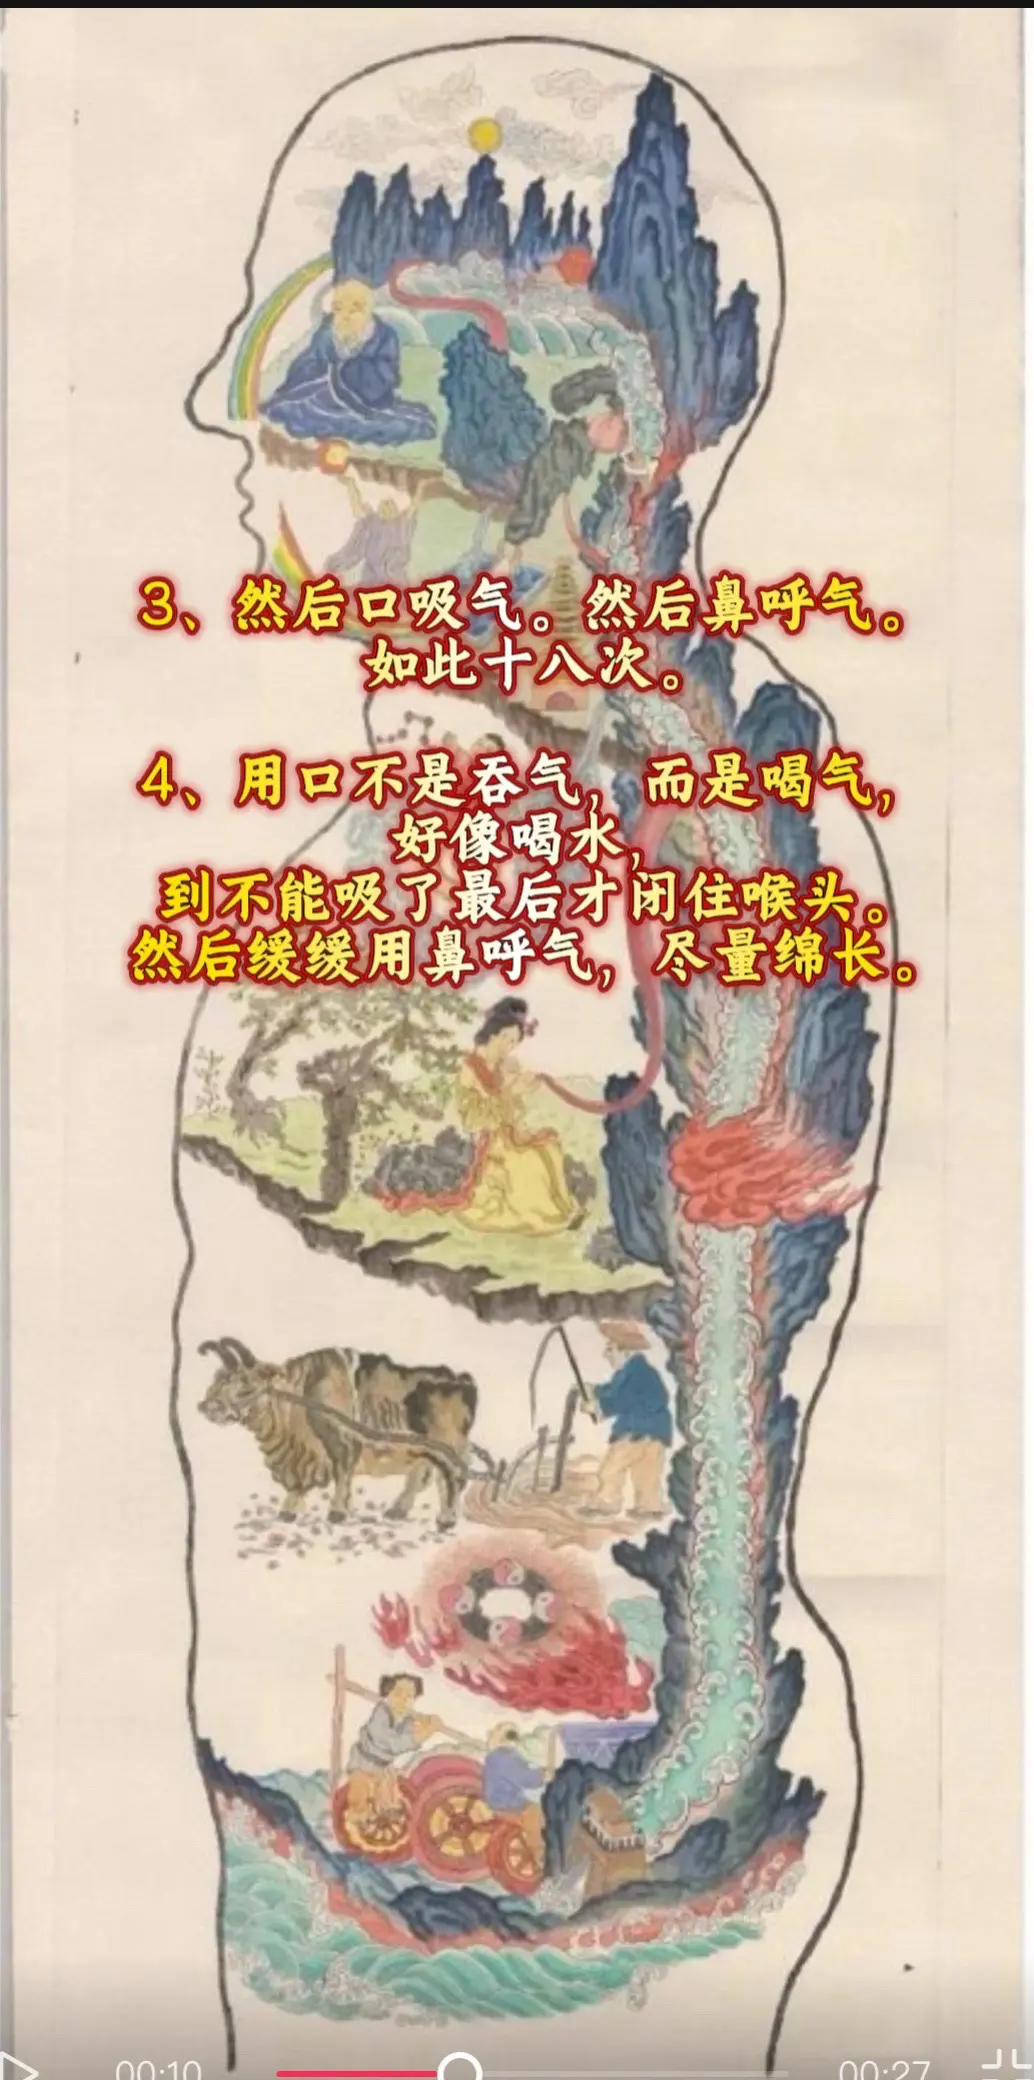 3、然后口吸气。然后鼻呼气。
如此十八次。
4、用口不是吞气，而是喝气，
好像喝水，
到不能吸了最后才闭住喉头。
然后缓缓用鼻呼气，尽量绵长。
00:10
00:27